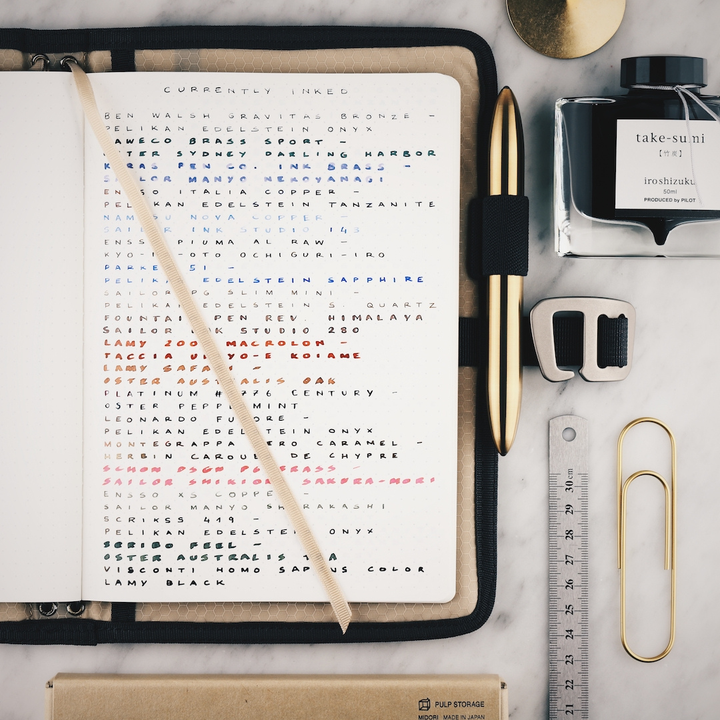 CURRENTLY INKED
BEN WALSH GRAVITAS BRONZE -
PELIKAN EDELSTEIN ONYX
KAWECO BRASS SPORT -
SYDNEY DARLING HARBOR
KARAS PEN CO. INK BRASS -
SAILOR MANYO NEKOYANAGI
ENSSO ITALIA COPPER -
PELIKAN EDELSTEIN TANZANITE
NAMISU NOVA COPPER -
SAILOR INK STUDIO 143
ENSSO PIUMA AL RAW -
KYO-NO-OTO OCHIGURI-IRO
PARKER 51 -
PELIKAN EDELSTEIN SAPPHIRE
SAILOR PG SLIM MINI -
PELIKAN EDELSTEIN S. QUARTZ
FOUNTAIN PEN REV. HIMALAYA
SAILOR INK STUDIO 280
LAMY 2000 MACROLON -
TACCIA UKIYO-E KOIAME
LAMY SAFARI -
OSTER AUSTRALIS OAK
PLATINUM #3776 CENTURY -
OSTER PEPPERMINT
LEONARDO FURORE -
PELIKAN EDELSTEIN ONYX
MONTEGRAPPA ZERO CARAMEL -
HERBIN CAROUBE DE CHYPRE
SCHON DSGN P6 BRASS -
SAILOR SHIKIORI SAKURA-MORI
ENSSO XS COPPER -
SAILOR MANYO SHIRAKASHI
SCRIKSS 419 -
PELIKAN EDELSTEIN ONYX
SCRIBO FEEL -
OSTER AUSTRALIS
VISCONTI HOMO SAPIENS COLOR
LAMY BLACK
take-sumi
【竹炭】
iroshizuku
50ml
PRODUCED by PILOT
30 cm
29
28
27
26
25
24
23
22
21
PULP STORAGE
MIDORI MADE IN JAPAN